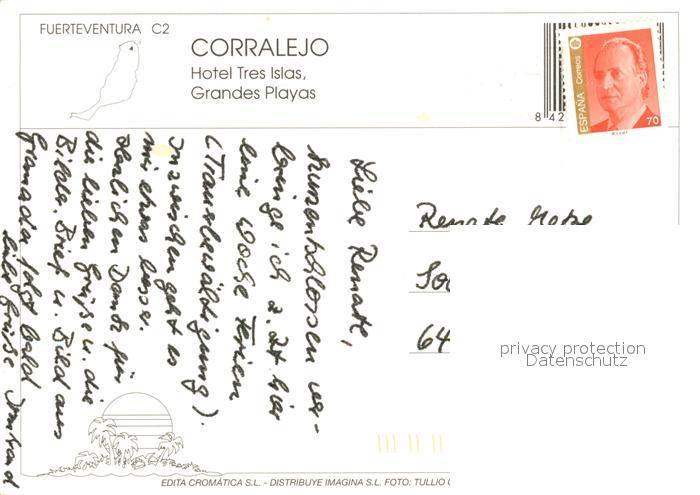 FUERTEVENTURA C2
CORRALEJO
Hotel Tres Islas,
Grandes Playas
842
ESPAÑA
CORREOS
70
Liebe Renate,
kurzentschlossen ver-
bringe ich z. Zt. hier
eine Woche Ferien
(Trauerbewältigung).
Inzwischen geht es
mir etwas besser.
Herzlichen Dank für
die lieben Grüße u. die
Bibel. Brief u. Bild aus
Granada folgt bald
liebe Grüße
Renate
64
privacy protection
Datenschutz
EDITA CROMÁTICA S.L. - DISTRIBUYE IMAGINA S.L. FOTO: TULLIO